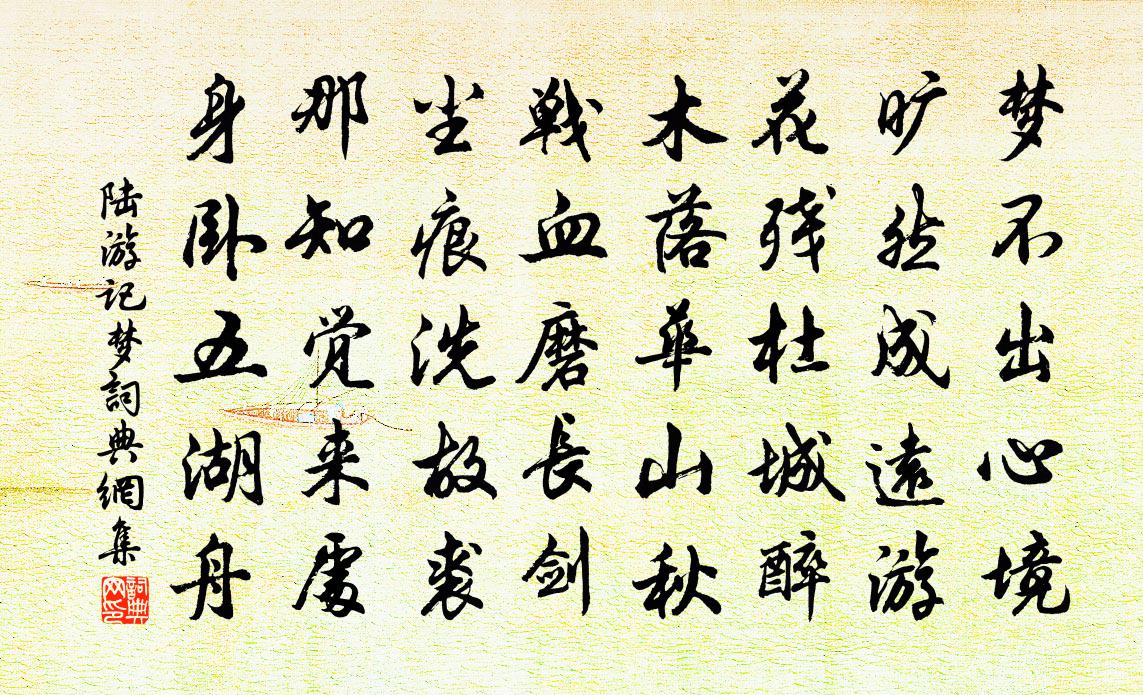 梦不出心境
旷然成远游
花残杜城醉
木落华山秋
戦血磨長剑
尘痕洗故裘
那知觉来處
身卧五湖舟
陆游记梦詞典網集
詞典网印